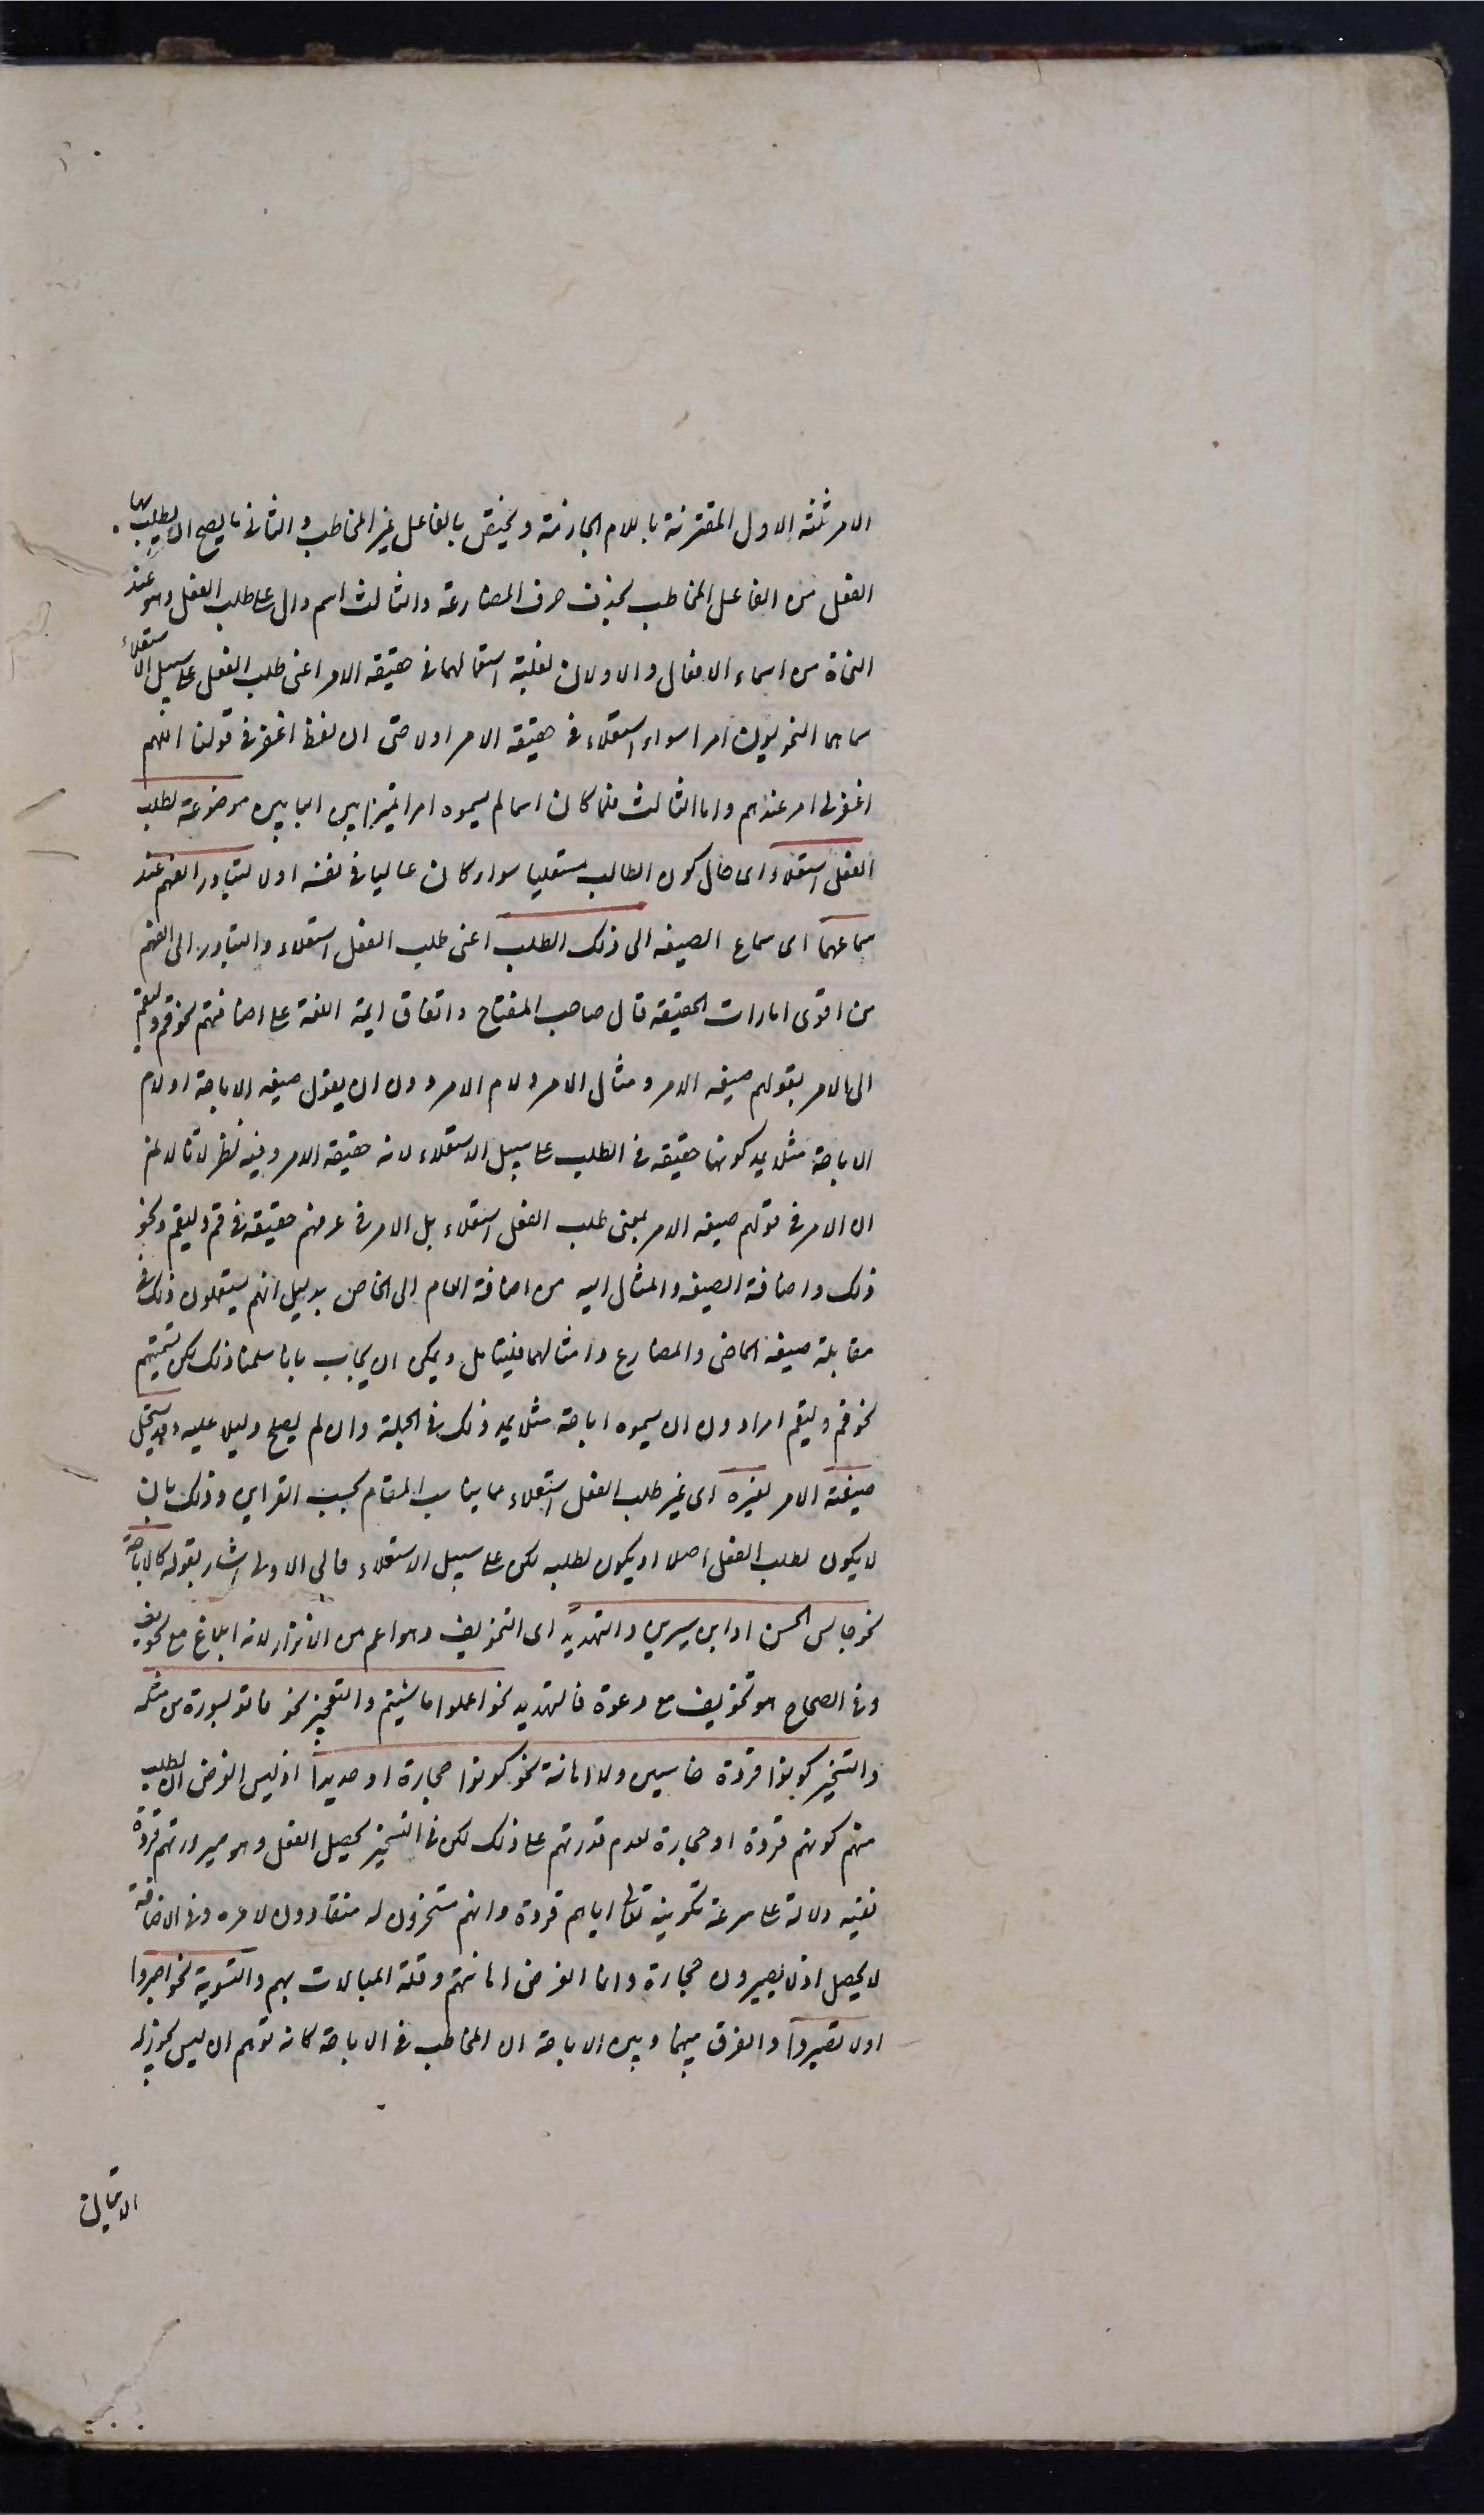 الامر ثلثه الاول المقترنة باللام الجازمة ويختص بالفاعل غير المخاطب والثانى ما يصح ان يطلب بها
الفعل من الفاعل المخاطب بحذف حرف المضارعة والثالث اسم دال على طلب الفعل وهو عند
النحاة من اسماء الافعال والاولان لغلبة استعمالهما فى حقيقه الامر اعنى طلب الفعل على سبيل الاستعلاء
سماهما النحويون امرا سواء استعملا فى حقيقه الامر اولا حتى ان لفظ اغفر فى قولنا اللهم
اغفر لى امر عندهم واما الثالث فلما كان اسما لم يسموه امرا تميزا بين البابين موضوعة لطلب
الفعل استعلاء اى حال كون الطالب مستعليا سواء كان عاليا فى نفسه اولا لتبادر الفهم عند
سماعهما اى سماع الصيغه الى ذلك الطلب اعنى طلب الفعل استعلاء والتبادر الى الفهم
من اقوى امارات الحقيقه قال صاحب المفتاح واتفاق ايمة اللغة على اضافتهم نحو قم وليقم
الى الامر بقولهم صيغه الامر ومثال الامر ولام الامر دون ان يقول صيغه الاباحة او لام
الاباحة مثلا يمد كونها حقيقه فى الطلب على سبيل الاستعلاء لانه حقيقه الامر وفيه نظر لانا لا نم
ان الامر فى قولهم صيغه الامر بمعنى طلب الفعل استعلاء بل الامر فى عرفهم حقيقه فى قم وليقم ونحو
ذلك واضافة الصيغه والمثال اليه من اضافة العام الى الخاص بدليل انهم يستعملون ذلك فى
مقابلة صيغه الماضى والمضارع وامثالهما فليتامل ويمكن ان يجاب بانا سلمنا ذلك لكن تسميتهم
نحو قم وليقم امرا دون ان يسموه اباحة مثلا يمد ذلك فى الجملة وان لم يصلح دليلا عليه وقد يستعمل
صيغته الامر لغيره اى غير طلب الفعل استعلاء مما يناسب المقام بحسب القراين وذلك بان
لا يكون لطلب الفعل اصلا او يكون لطلبه لكن على سبيل الاستعلاء فالى الاول اشار بقوله كالاباحة
نحو جالس الحسن او ابن سيرين والتهديد اى التخويف وهو اعم من الانذار لانه ابلاغ مع تخويف
وفى الصحاح هو تخويف مع دعوة فالتهديد نحو اعملوا ما شيتم والتعجيز نحو فاتو بسورة من مثله
والتسخير كونوا قردة خاسين والاهانة نحو كونوا حجارة او حديدا اذ ليس الغرض ان يطلب
منهم كونهم قردة او حجارة لعدم قدرتهم على ذلك لكن فى التسخير يحصل الفعل وهو صيرورتهم قردة
ففيه دلالة على سرعة تكوينه تعالى اياهم قردة وانهم مسخرون له منقادون لامره وفى الاهانة
لا يحصل اذ لا يصيرون حجارة وانما الغرض اهانتهم وقلة المبالات بهم والتسوية نحو اصبروا
او لا تصبروا والفرق بينها وبين الاباحة ان المخاطب فى الاباحة كانه توهم ان ليس يجوز له
الاتيان